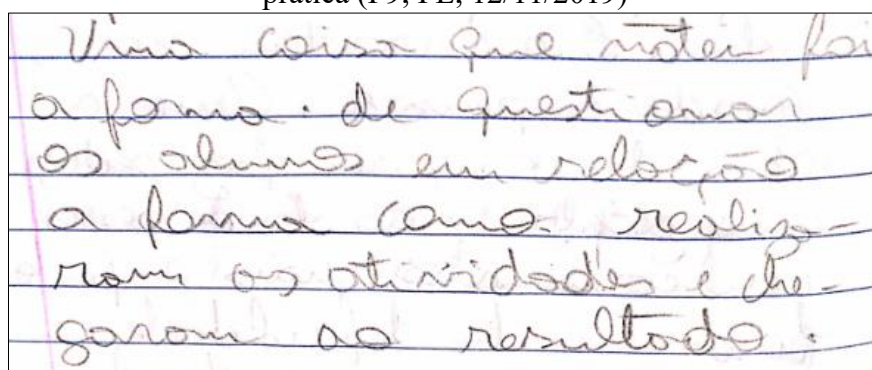 prática (P9, PE, 12/11/2019)
Uma coisa que notei foi
a forma de questionar
os alunos em relação
a forma como realiza-
ram as atividades e che-
garam ao resultado.